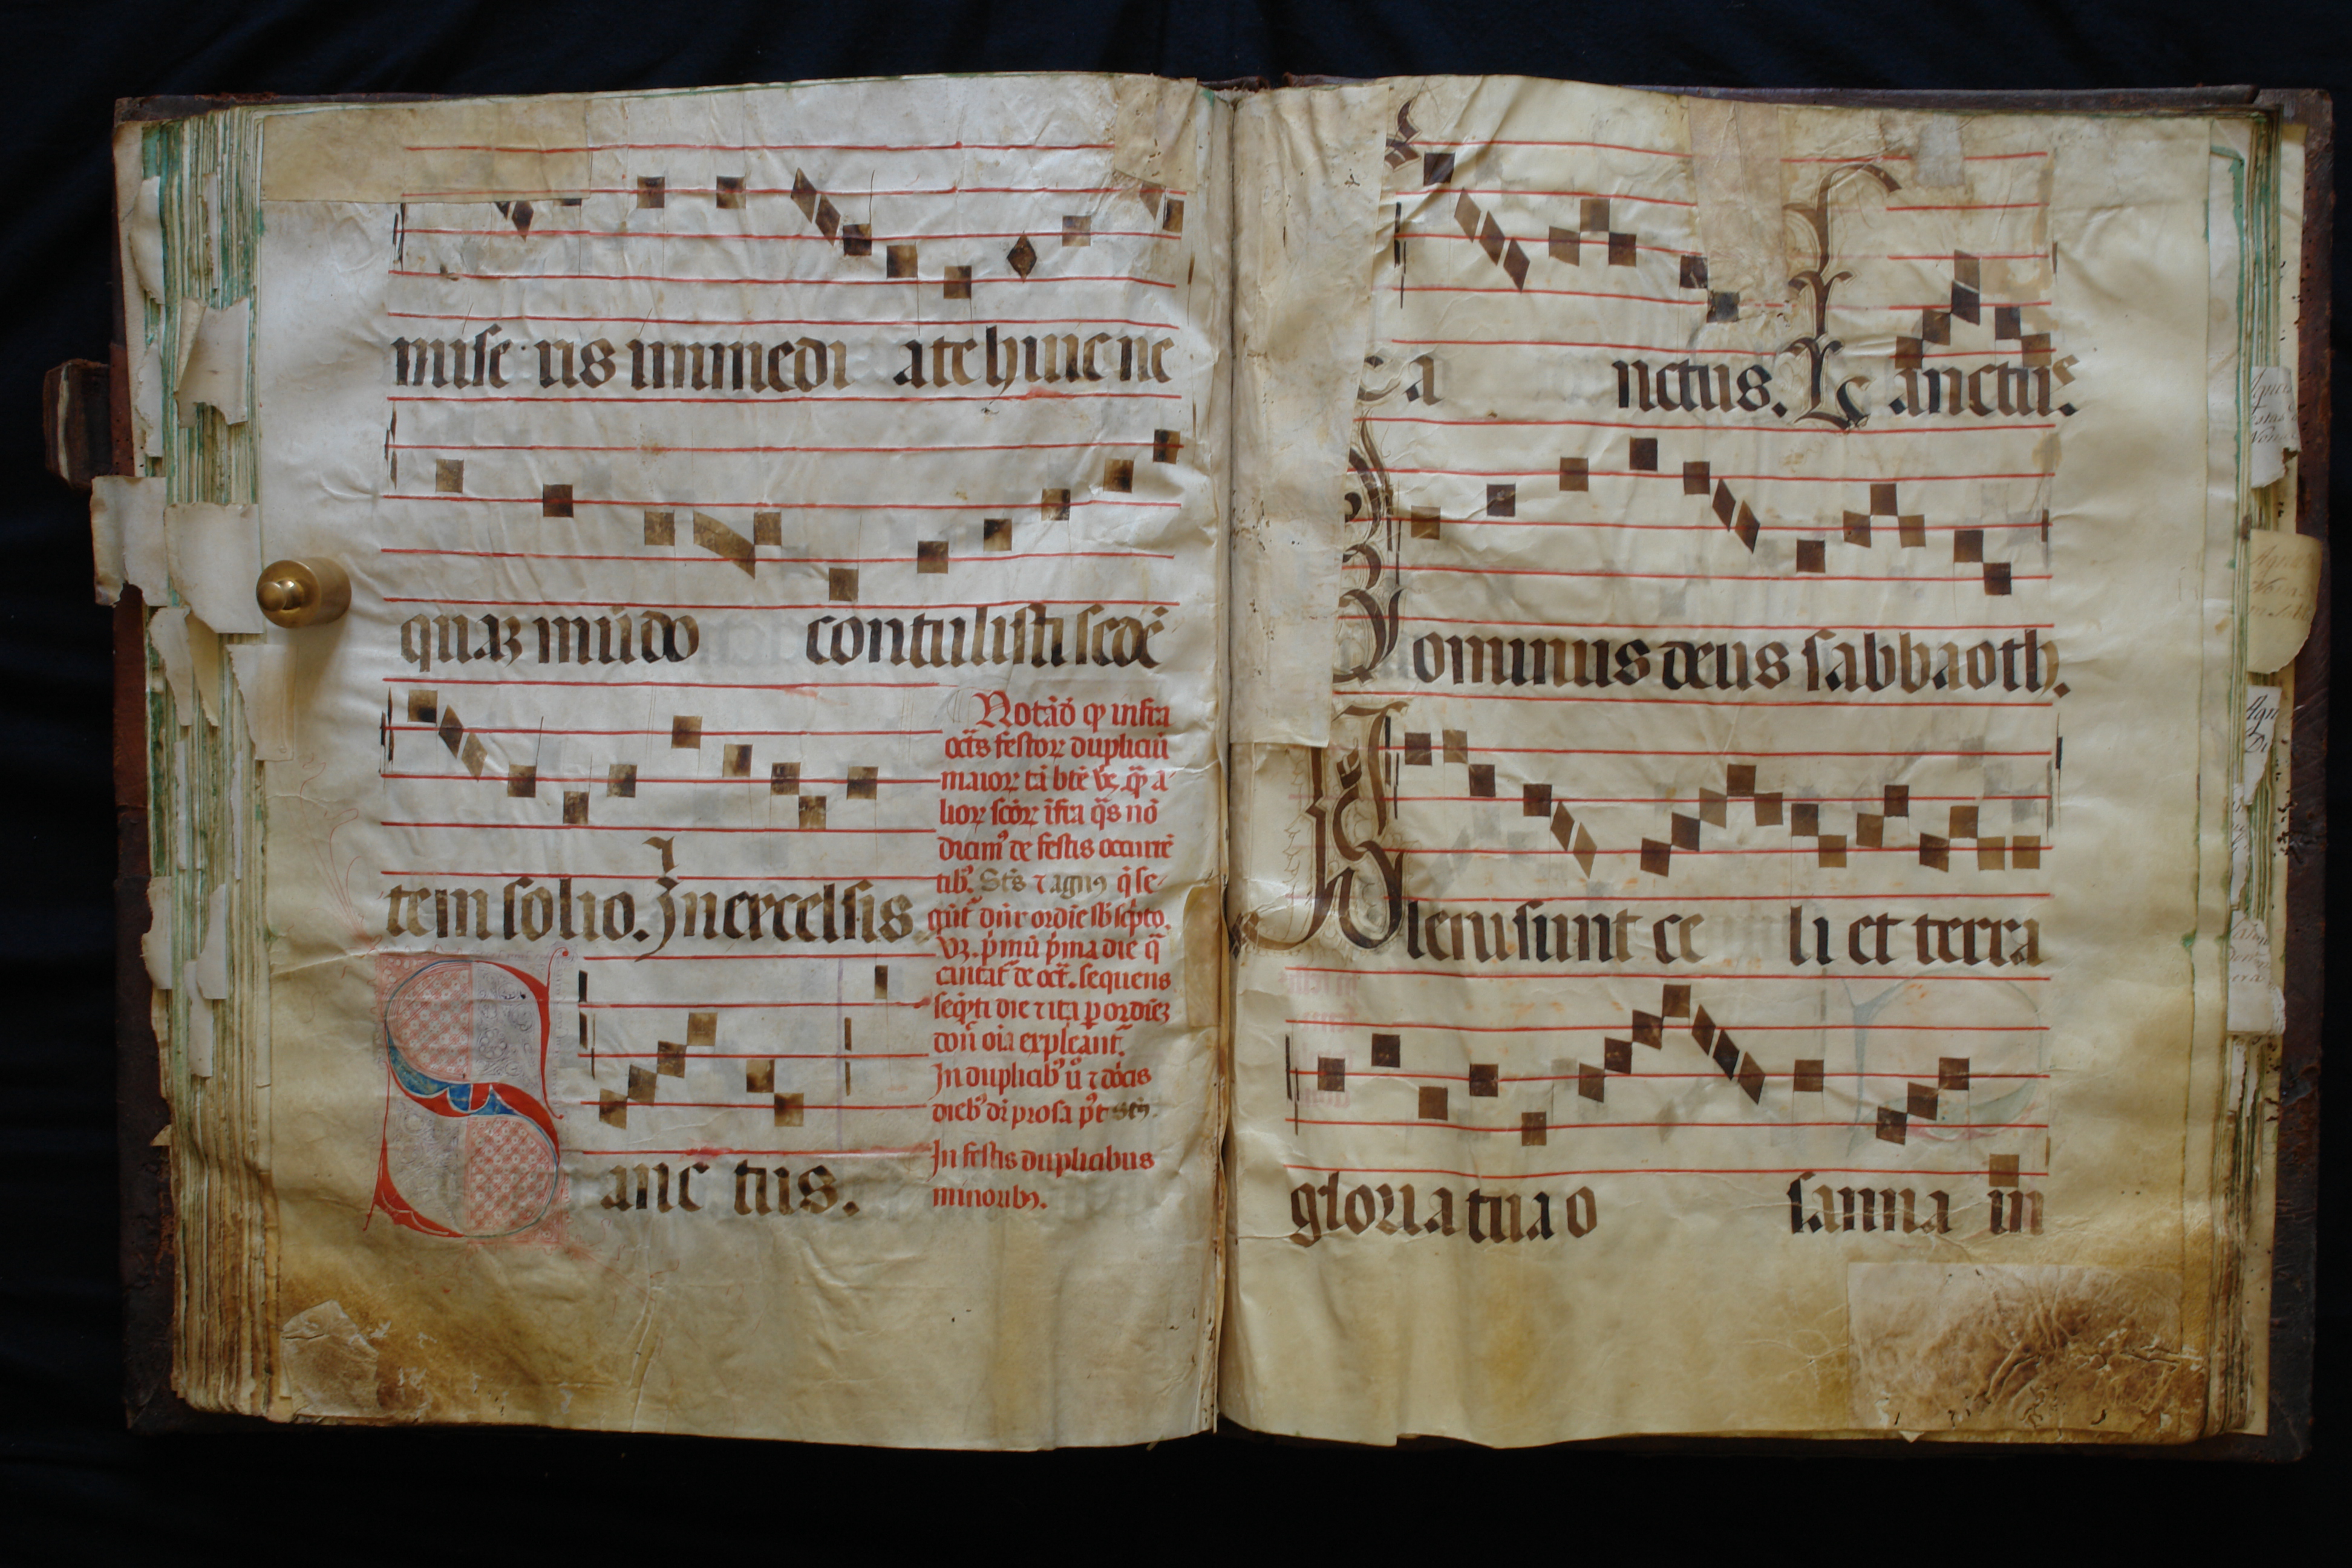 mise ris inmedi ate huic ne
quaz mūdo contulisti sedē
tem solio. In excelsis
Notādō qp infra
octs festorꝝ dupliciū
maiorꝝ tā btē
liorꝝ scōrꝝ īfra q̄s nō
dicim᷒ de festis occurrē
tib᷒. Sct̄s ⁊ agn᷒ q̄ se
ordīe
p̄mū p̄ma die q̄
cātat̄ de oct̄. sequens
seq̄ti die ⁊ ita p ordīez
don̄ oīa expleant̄.
In duplicib᷒ ū ⁊ dōcis
dieb᷒ dr̄ prosa p᷒t sct̄᷒
In festis duplicibus
minorib᷒.
Sanc tus.
Sa nctus. Sanctus.
Dominus deus sabbaoth.
Pleni sunt ce li et terra
gloria tua o sanna in